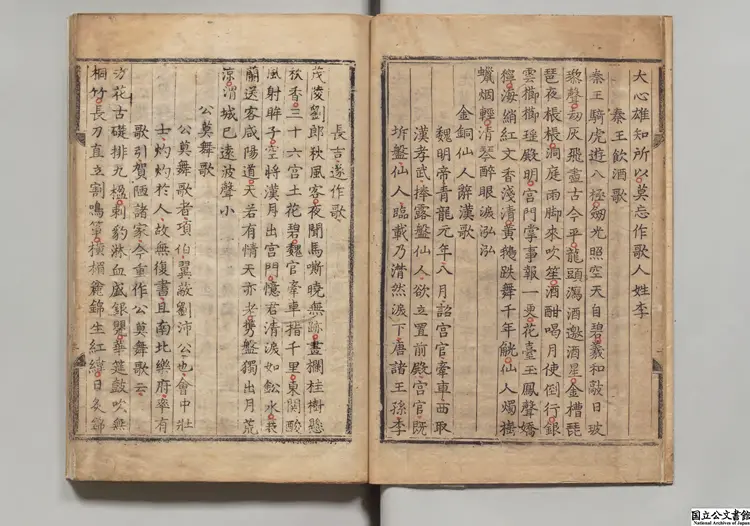 大心雄知所以莫忘作歌人姓李
秦王飲酒歌
秦王騎虎遊八極劒光照空天自碧羲和敲日玻
瓈聲刼灰飛盡古今平龍頭瀉酒邀酒星金槽琵
琶夜棖棖洞庭雨脚來吹笙酒酣喝月使倒行銀
雲櫛櫛瑶殿明宫門掌事報一更花臺王鳳聲嬌
獰海綃紅文香淺清黃鵝跌舞千年觥仙人燭樹
蠟烟輕清琴醉眼淚泓泓
金銅仙人辭漢歌
魏明帝青龍元年八月詔宫官牽車西取
漢孝武捧露盤仙人欲立置前殿宫官既
拆盤仙人臨載乃潸然淚下唐諸王孫李
長吉遂作歌
茂陵劉郎秋風客夜聞馬嘶曉無跡畫欄桂樹懸
秋香三十六宫土花碧魏官牽車指千里東關酸
風射眸子空將漢月出宫門憶君清淚如鈆水衰
蘭送客咸陽道天若有情天亦老携盤獨出月荒
涼渭城已遠波聲小
公莫舞歌
公莫舞歌者項伯翼蔽劉沛公也會中壯
士灼灼於人故無復書且南北樂府率有
歌引賀陋諸家今重作公莫舞歌云
方花古礎排九楹刺豹淋血盛銀甖華筵鼓吹無
桐竹長刀直立割鳴箏橫楣麄錦生紅緯日炙錦
国立公文書館
National Archives of Japan